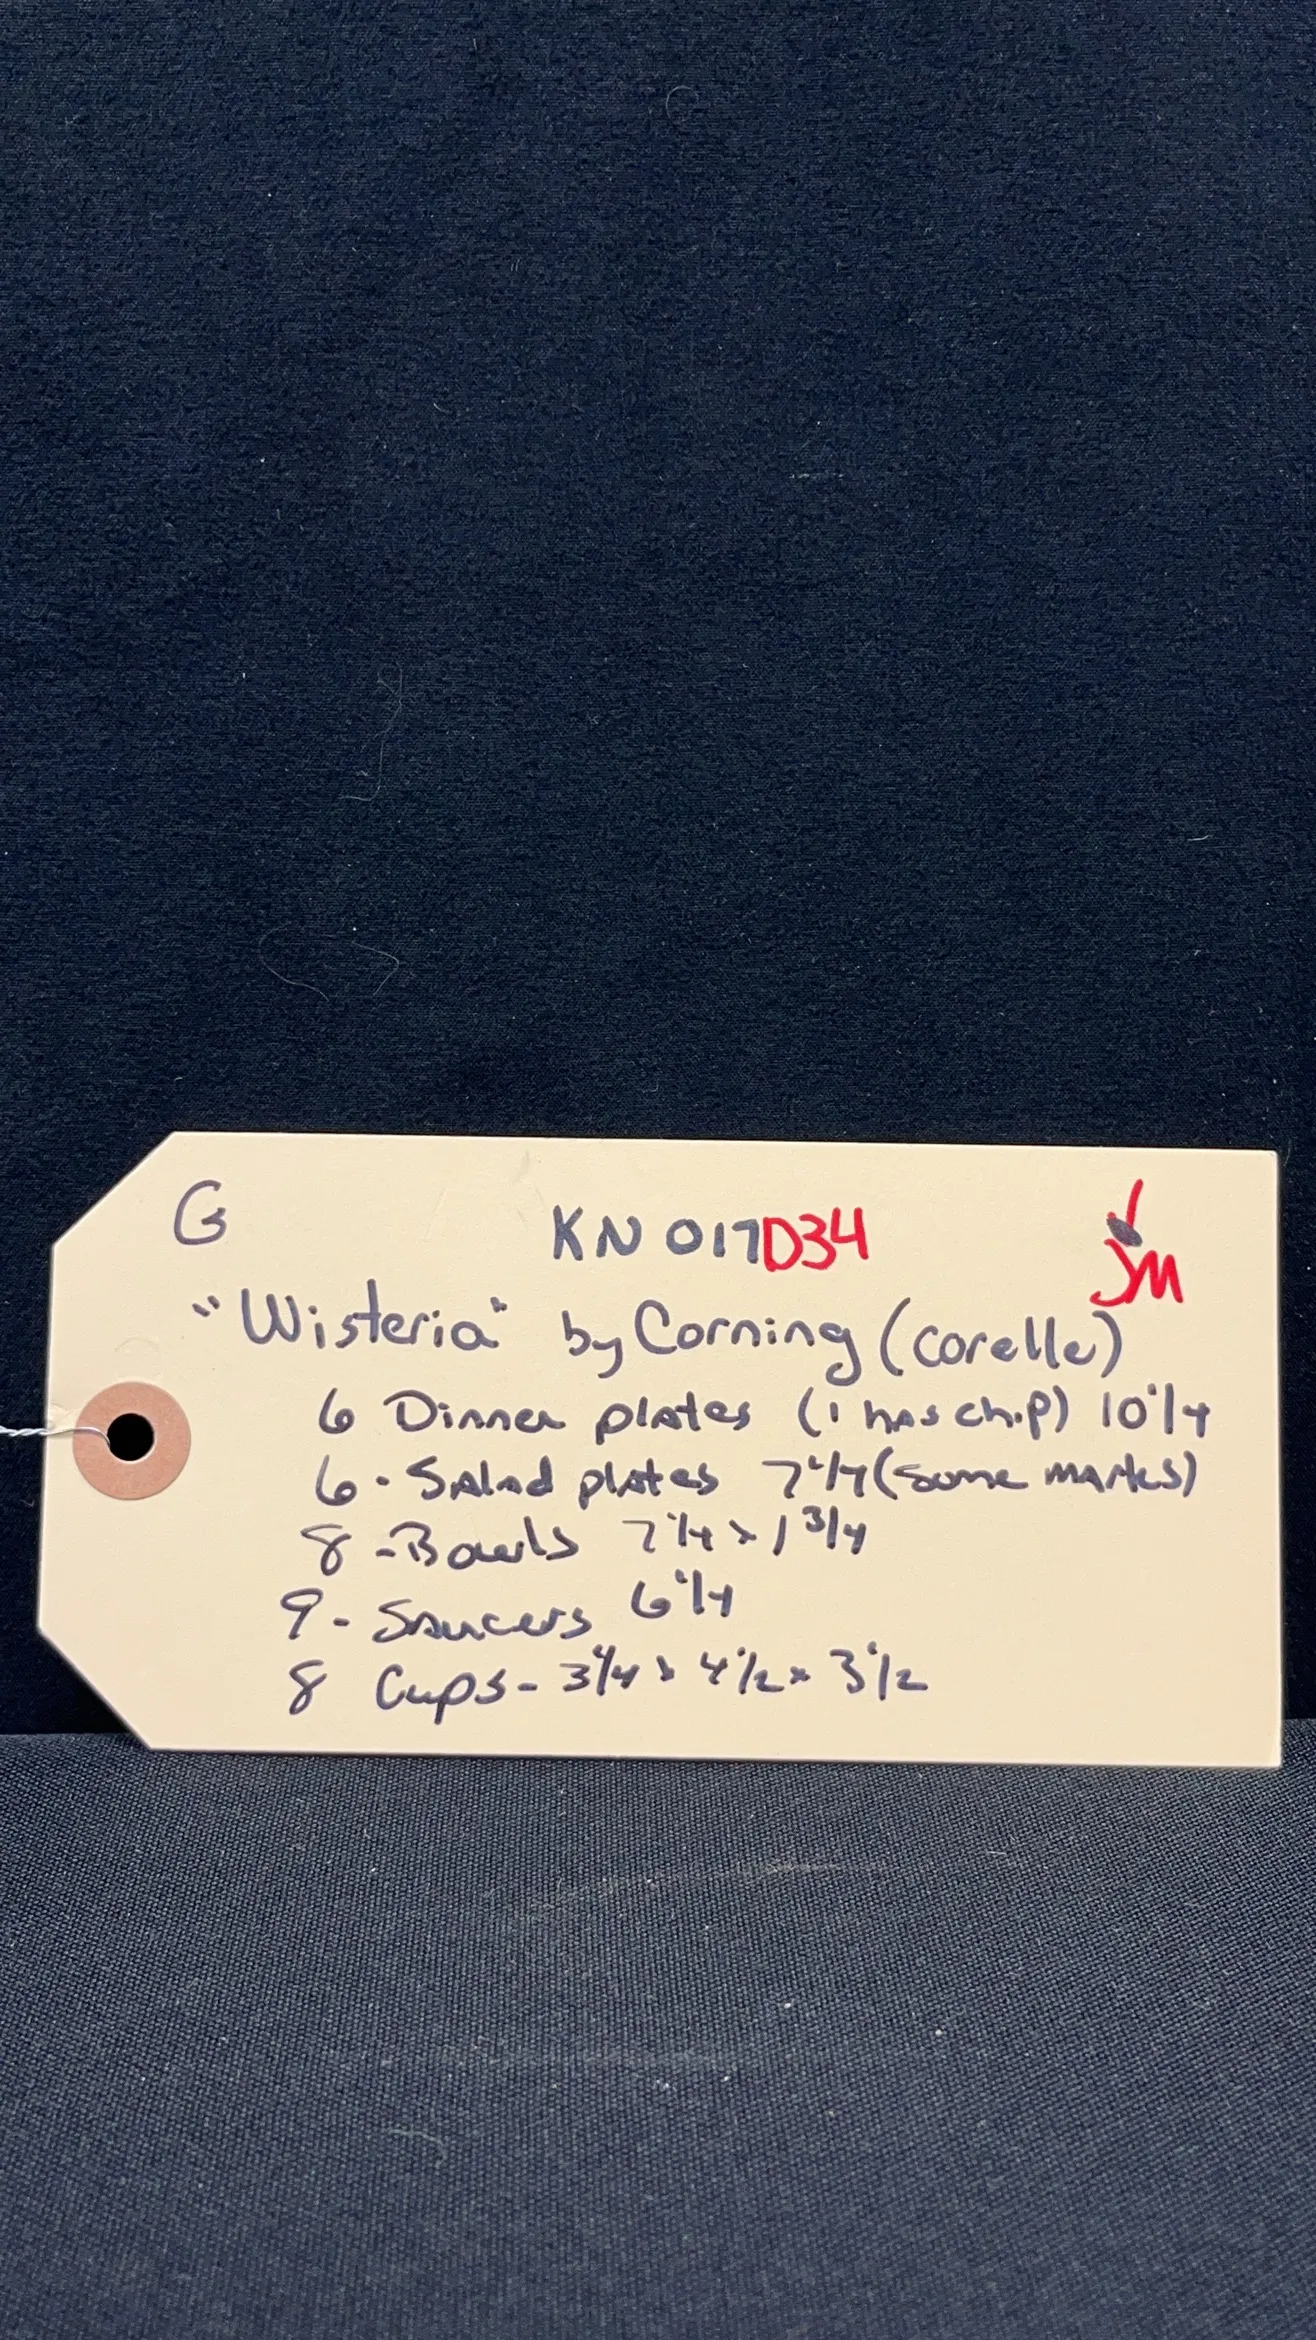 G KN 017D34 JM
"Wisteria" by Corning (corelle)
6 Dinner plates (1 has chip) 10 1/4
6 - Salad plates 7 1/4 (some marks)
8 - Bowls 7 1/4 x 1 3/4
9 - Saucers 6 1/4
8 Cups - 3 1/4 x 4 1/2 x 3 1/2